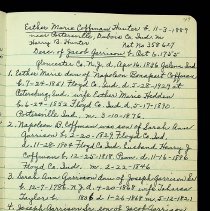 Esther Marie Coffman Hunter b. 11-3-1889
near Petersville, Dubois Co. Ind. m
Harry B. Hunter Nat No 358617
Desc. of Jacob Garrison b. Oct 6, 1755
Gloucester Co. N.J. d. Apr. 16, 1836 Salem Ind.
1. Esther Marie dau of Napoleon Bonapart Coffman
b. 7-24-1847 Floyd Co. Ind d. 5-28-1929 at
Petersburg, Ind. wife Esther Marie
b. 6-27-1852 Floyd Co. Ind d. 5-17-1890
Petersville Ind. m. 5-10-1876
2. Napoleon B Coffman was son of Sarah Ann
Garrison b. 5-20-1827 Floyd Co. Ind
d. 11-28-1904 Floyd Co. Ind. husband Henry J.
Coffman b. 12-25-1818 Penn. d. 11-16-1886
Floyd Co. Ind. m. 2-22-1846
3. Sarah Ann Garrison dau of Joseph Garrison
b. 12-7-1786 N.J. d. 9-20-1868 wife
Taylor b. 1836 d. 1-26-1868 m. 5-12-1821
4. Joseph Garrison son of Jacob Garrison